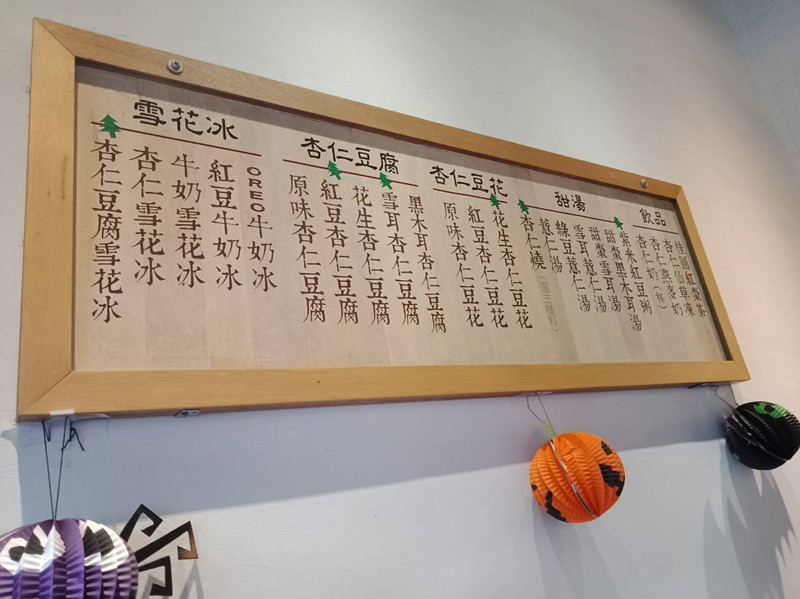 雪花冰
杏仁豆腐雪花冰
杏仁雪花冰
牛奶雪花冰
紅豆牛奶冰
OREO牛奶冰
杏仁豆腐
原味杏仁豆腐
紅豆杏仁豆腐
花生杏仁豆腐
雪耳杏仁豆腐
黑木耳杏仁豆腐
杏仁豆花
原味杏仁豆花
紅豆杏仁豆花
花生杏仁豆花
甜湯
杏仁燒
薏仁湯
綠豆薏仁湯
雪耳薏仁湯
甜棗雪耳湯
甜棗黑木耳湯
紫米紅豆粥
飲品
杏仁奶(杯)
杏仁燕麥奶
杏仁仙草凍
桂圓紅棗茶